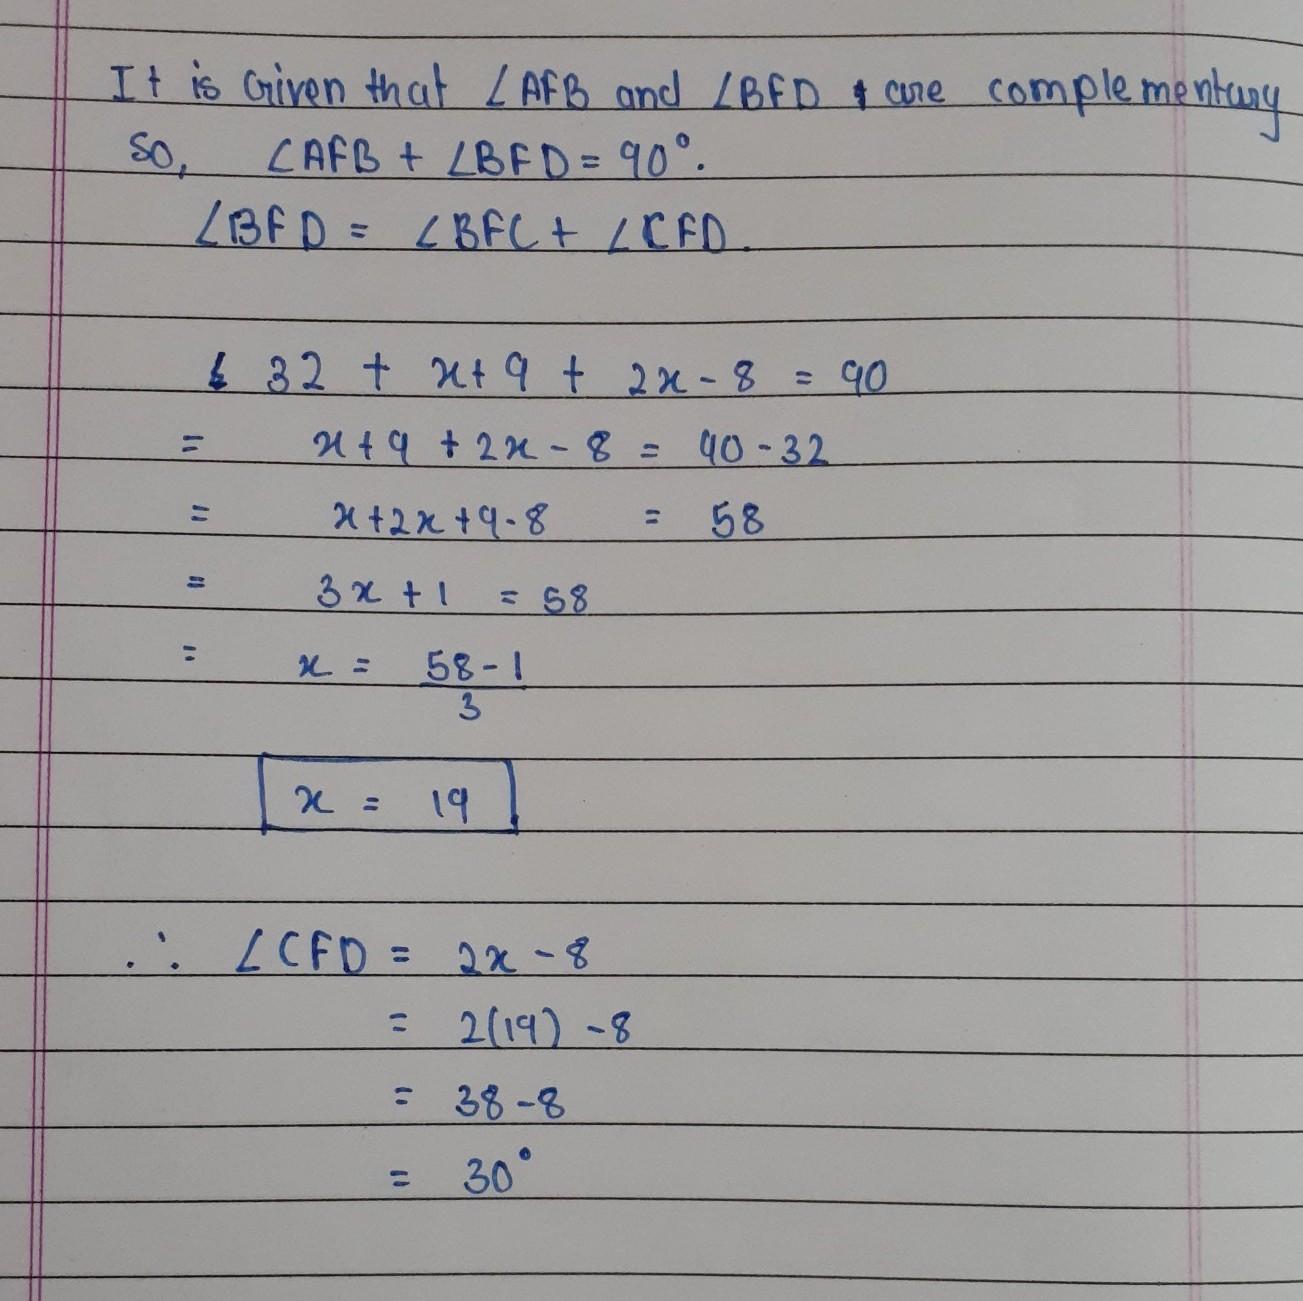 It is Given that ∠AFB and ∠BFD are complementary
So, ∠AFB + ∠BFD = 90°.
∠BFD = ∠BFC + ∠CFD.
32 + x+9 + 2x-8 = 90
= x+9 +2x-8 = 90-32
= x+2x+9-8 = 58
= 3x +1 = 58
= x = 58-1
3
x = 19
∴ ∠CFD = 2x - 8
= 2(19) -8
= 38-8
= 30°